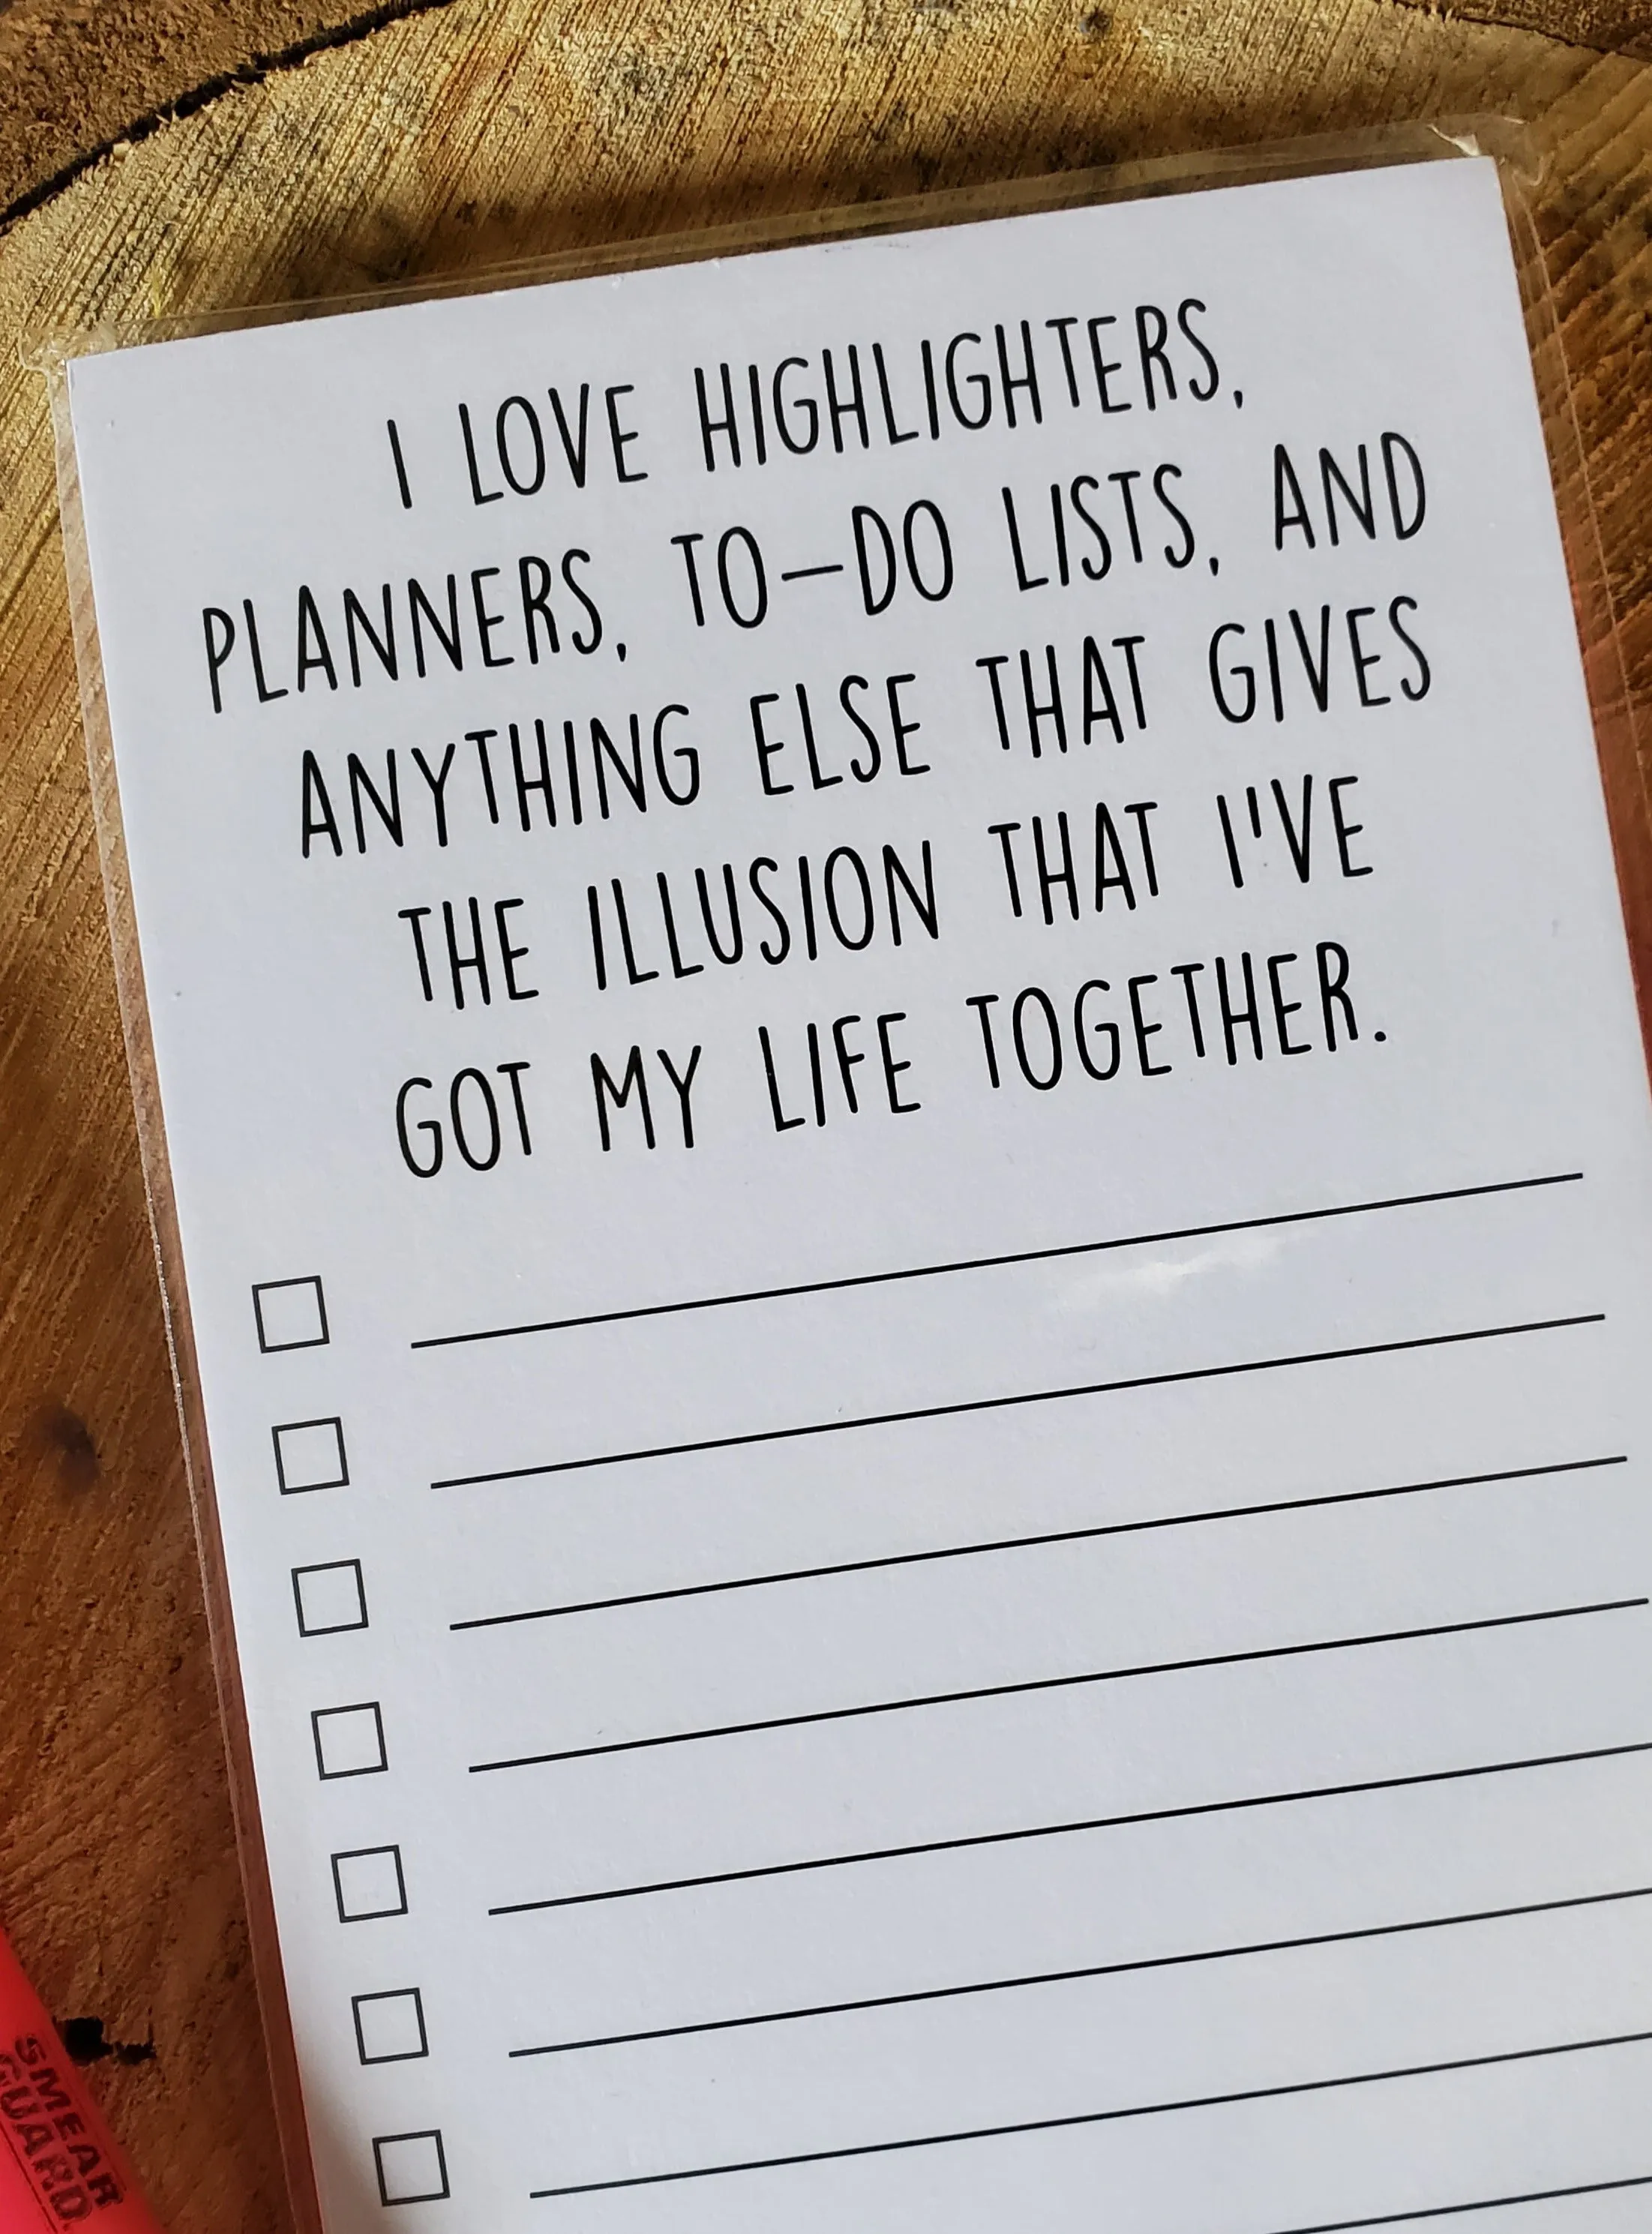 I LOVE HIGHLIGHTERS,
PLANNERS, TO-DO LISTS, AND
ANYTHING ELSE THAT GIVES
THE ILLUSION THAT I'VE
GOT MY LIFE TOGETHER.
SMEAR
GUARD